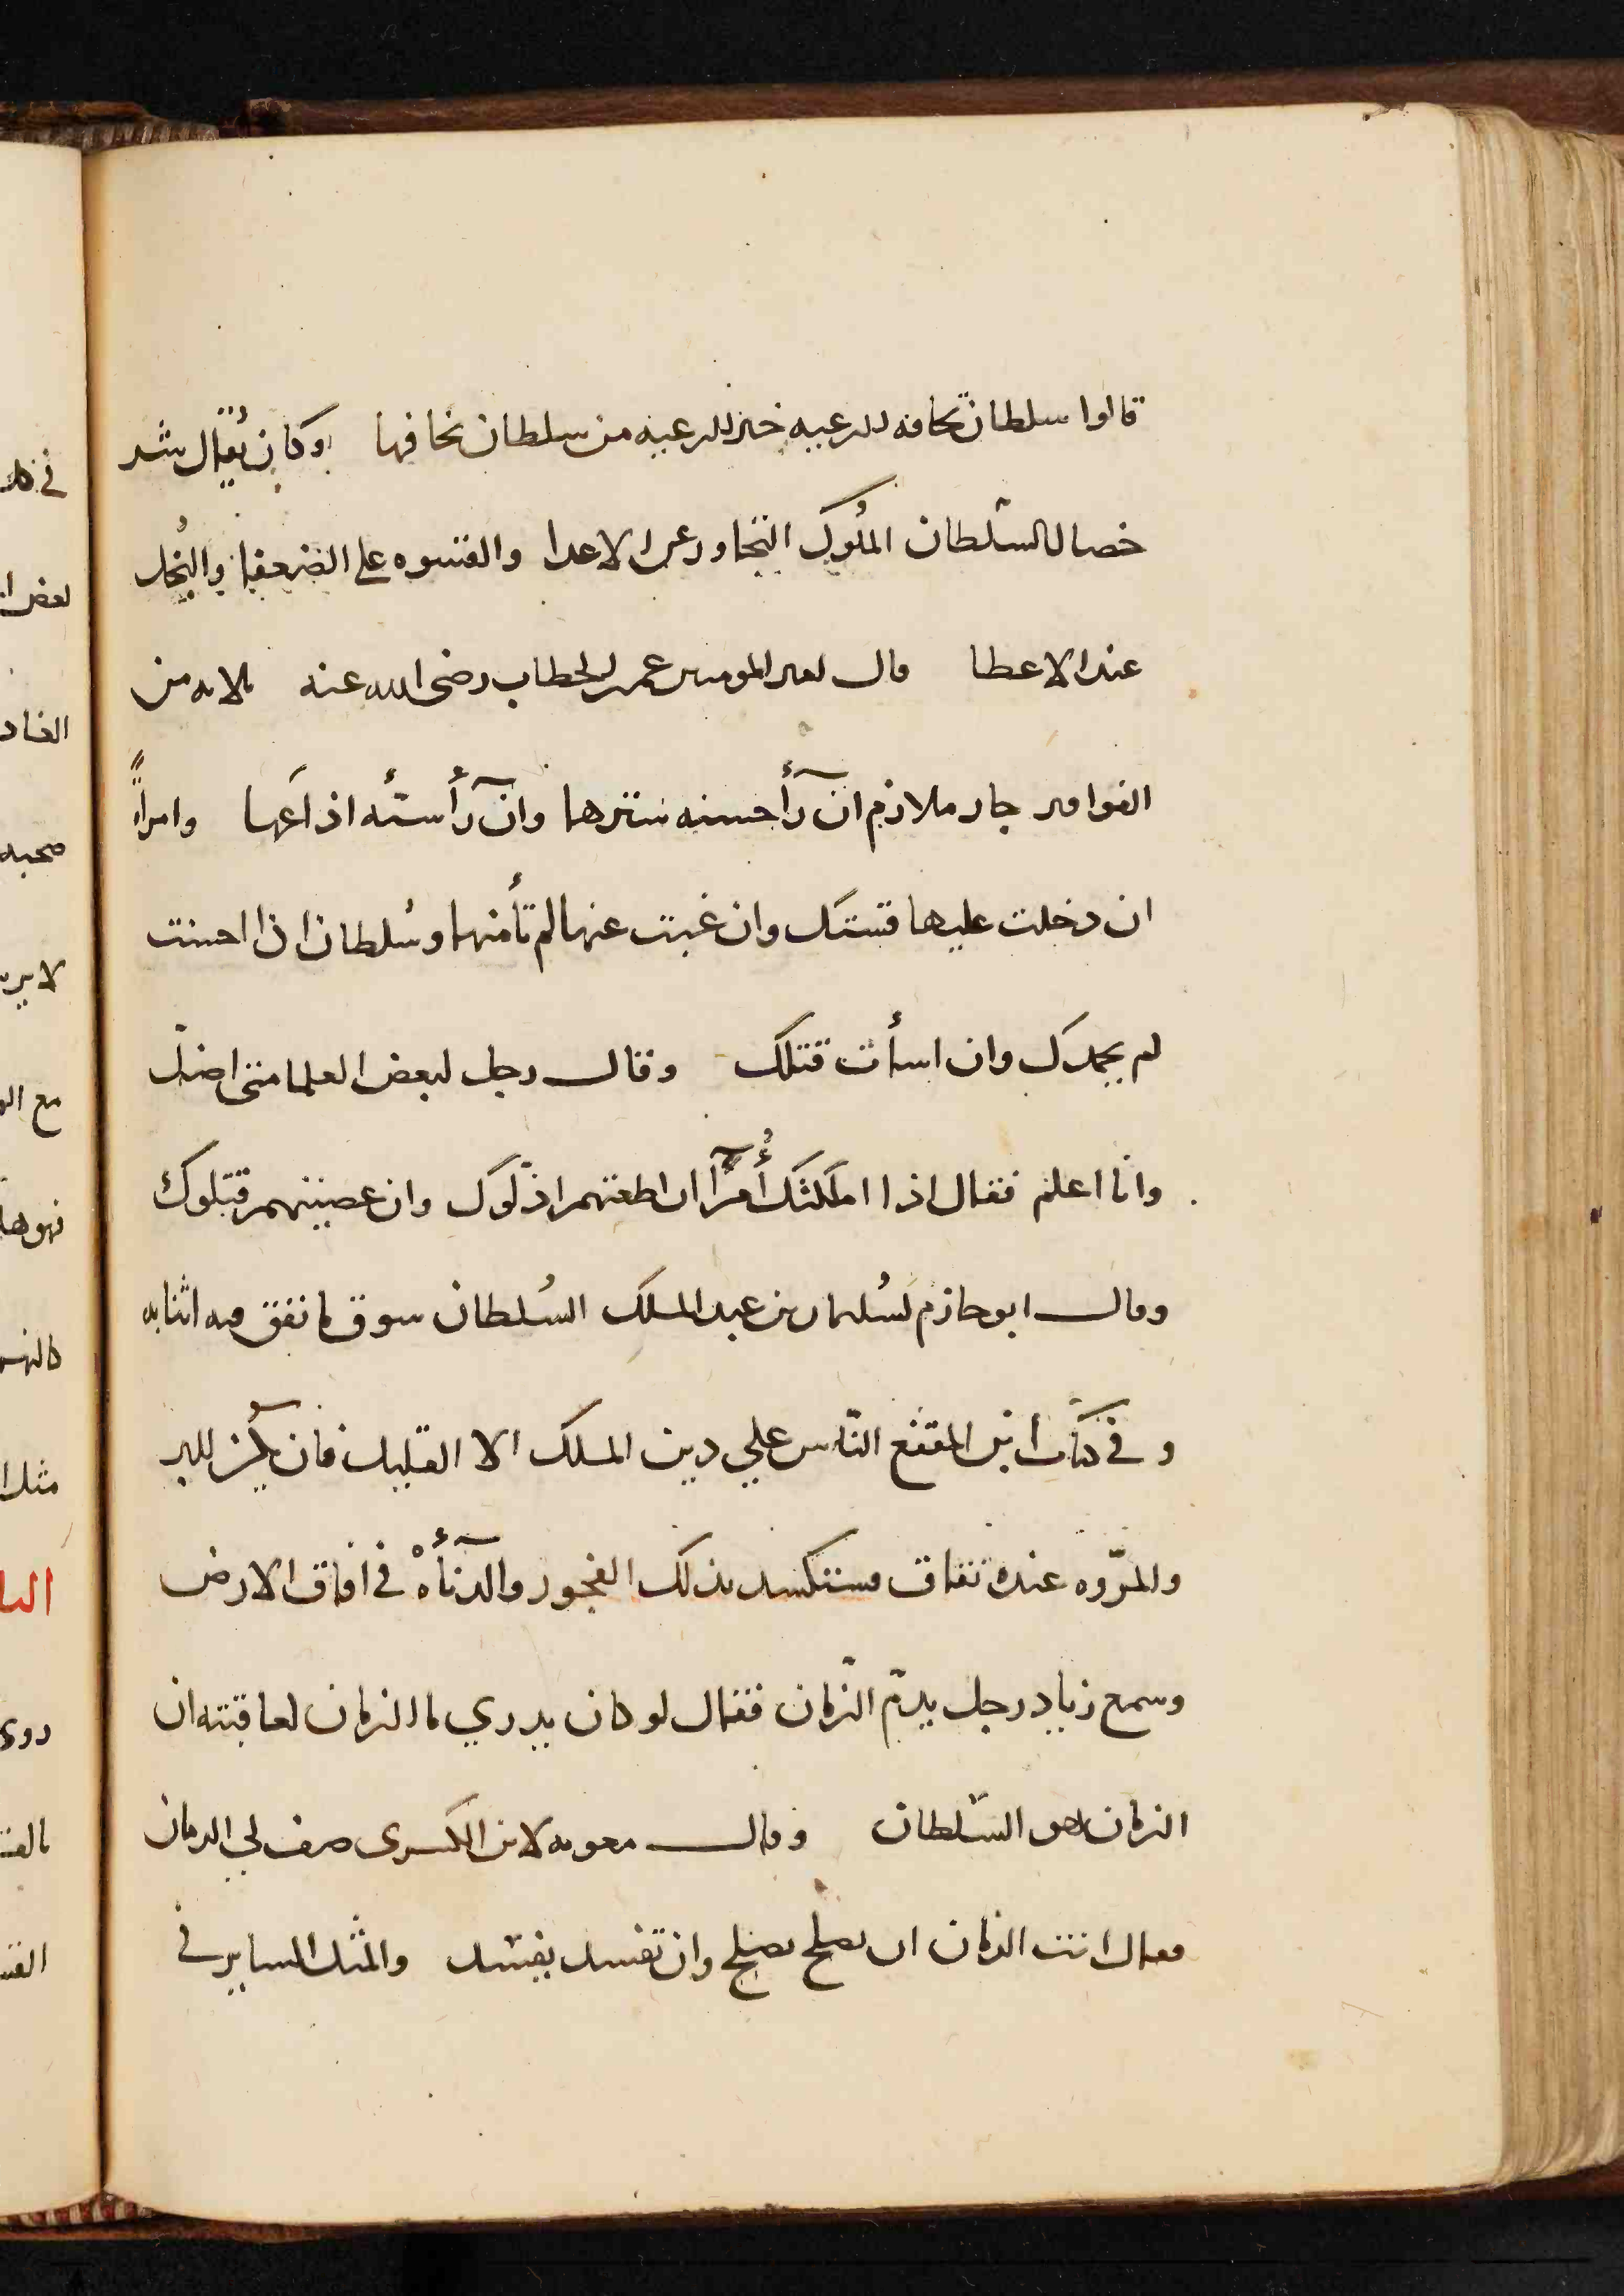 قالوا سلطان تخافه الرعيه خير للرعيه من سلطان يخافها وكان يُقال شر
خصال السّلطان الملُوك التجاوز عن الاعدا والقسوه على الضعفا والبُخل
عند الاعطا قال امير المومنين عمر بن الخطاب رضى الله عنه ثلاثه من
الفواقر جار ملازم ان رأ حسنه سترها وان رأ سئه اذاعها وامرأةً
ان دخلت عليها قستك وان غبت عنها لم تأمنها وسُلطان اذا احسنت
لم يحمدك وان اسأت قتلك وقال رجل لبعض العلما متى اضل
وانا اعلم فقال اذا املكتك أُمرآ ان اطعتهم اذلّوك وان عصيتهم قتلوك
وقال ابو حازم لسُليمان بن عبد الملك السُلطان سوق ما نفق فيه اتنا به
وفي كتاب ابن المقفع النّاس علي دين الملك الا القليل فان يكُن للبر
والمرّوه عنده نفاق فستكسد بذلك الفجور والدنآءه في افاق الارض
وسمع زياد رجل يذمّ الزّمان فقال لو كان يدري ما الزمان لعاقبته ان
الزمان هو السّلطان وقال معويه لابن الكسرى صف لي الزمان
فقال انت الزمان ان تصلح يصلح وان تفسد يفسد والمثل الساير في